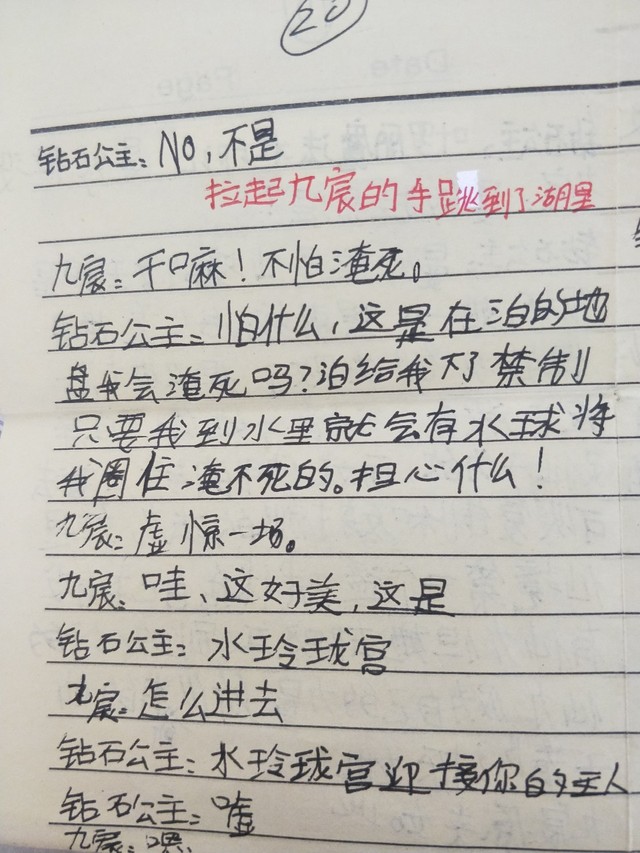 20
钻石公主：No，不是
拉起九宸的手跳到了湖里
九宸：干口麻！不怕淹死。
钻石公主：怕什么，这是在泊的地
盘我会淹死吗？泊给我下了禁制
只要我到水里就会有水球将
我圈住淹不死的。担心什么！
九宸：虚惊一场。
九宸：哇、这好美，这是
钻石公主：水玲珑宫
九宸：怎么进去
钻石公主：水玲珑宫迎接你的主人
钻石公主：嘘
九宸：嗯